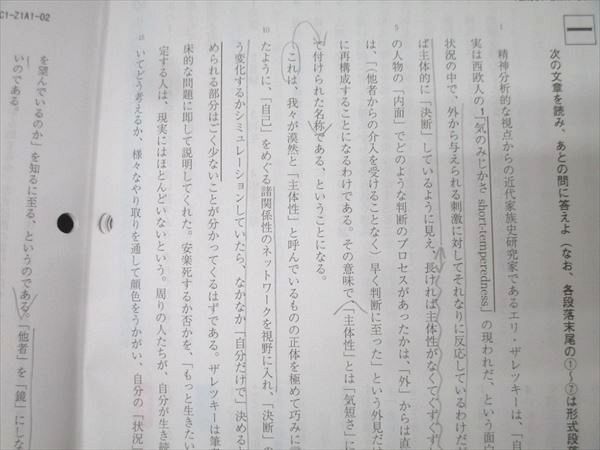 C1-Z1A1-02
一
次の文章を読み、あとの問に答えよ（なお、各段落末尾の①〜⑦は形式段落
1
精神分析的な視点からの近代家族史研究家であるエリ・ザレツキーは、「自
実は西欧人の「気のみじかさ short-temperedness」の現われた、という面白
状況の中で、外から与えられる刺激に対してそれなりに反応しているわけだが
ば主体的に「決断」しているように見え、長ければ主体性がなくてぐずぐず
5
の人物の「内面」でどのような判断のプロセスがあったかは、「外」からは直
は、「（他者からの介入を受けることなく）早く判断に至った」という外見だけ
に再構成することになるわけである。その意味で、「主体性」とは「気短さ」に
で付けられた名称である、ということになる。
これは、我々が漠然と「主体性」と呼んでいるものの正体を極めて巧みに言
10
たように、「自己」をめぐる諸関係性のネットワークを視野に入れ、「決断」の
う変化するかシミュレーションしていたら、なかなか「自分だけで」決めると
められる部分はごく少ないことが分かってくるはずである。ザレツキーは筆者
床的な問題に即して説明してくれた。安楽死するか否かを、「もっと生きたい
定する人は、現実にはほとんどいないという。周りの人たちが、自分が生き続
15
いてどう考えるか、様々なやり取りを通して顔色をうかがい、自分の「状況」
を望んでいるのか」を知るに至る、というのである。「他者」を「鏡」にしな
いのである。